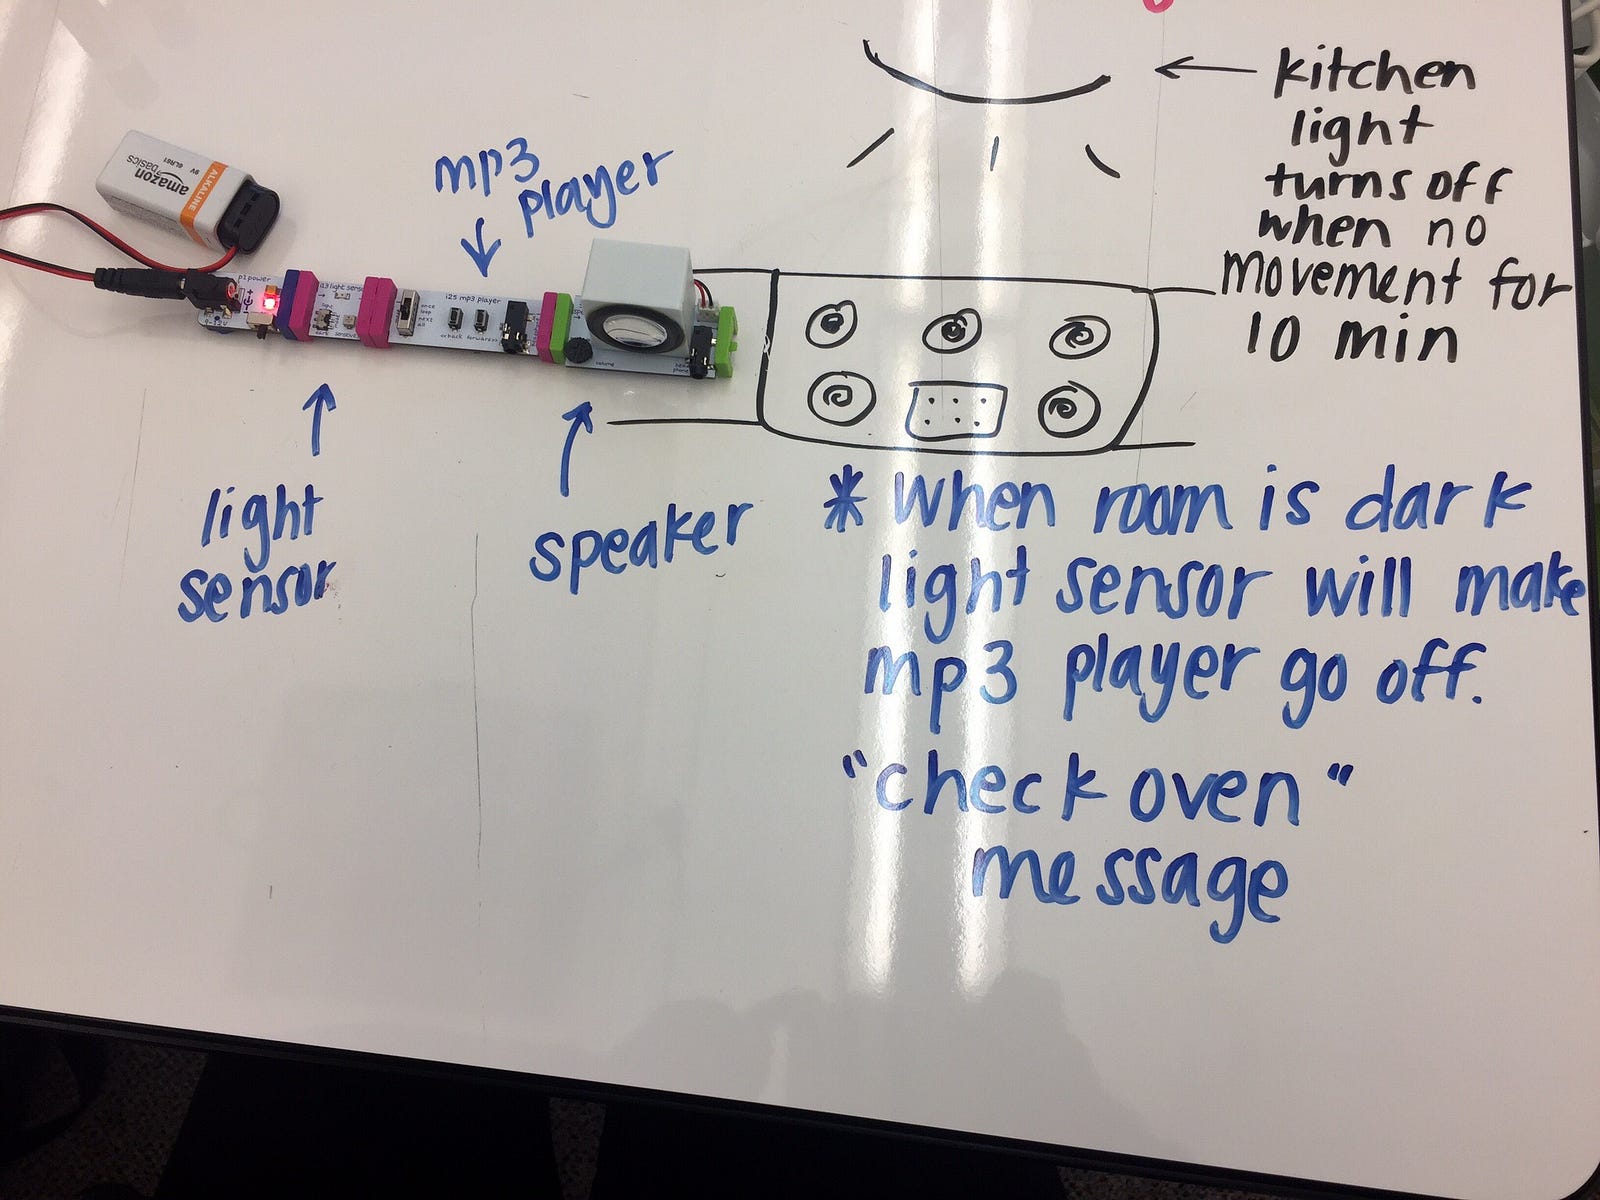 kitchen
light
turns off
when no
movement for
10 min
mp3
player
amazon
basics
ALKALINE
9V 6LR61
p1 power
i13 light sensor
i25 mp3 player
once
loop
next
all
back forward
volume
light
sensor
speaker
* when room is dark
light sensor will make
mp3 player go off.
"check oven"
message